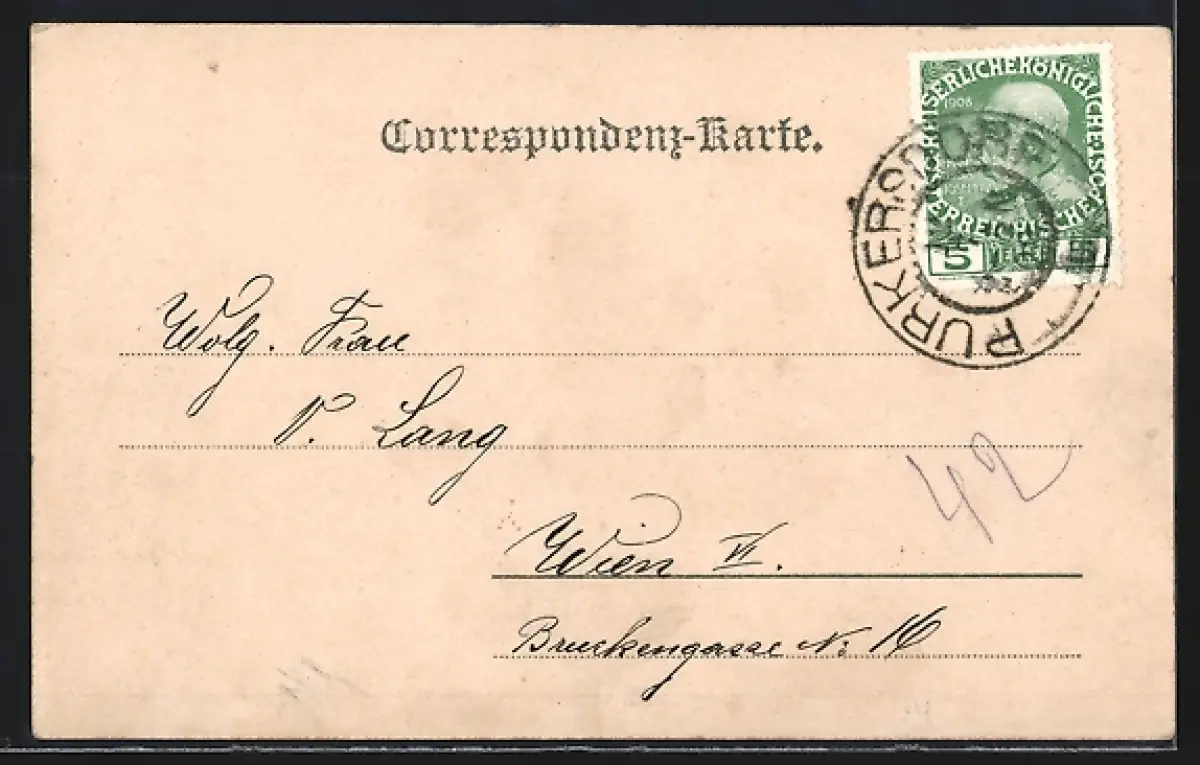 Correspondenz-Karte.
KAISERLICHEKÖNIGLICHE
ÖSTERREICHISCHE
1908
5
PURKERSDORF
Wolg. Frau
P. Lang
42
Wien VI.
Bruckengasse No 16